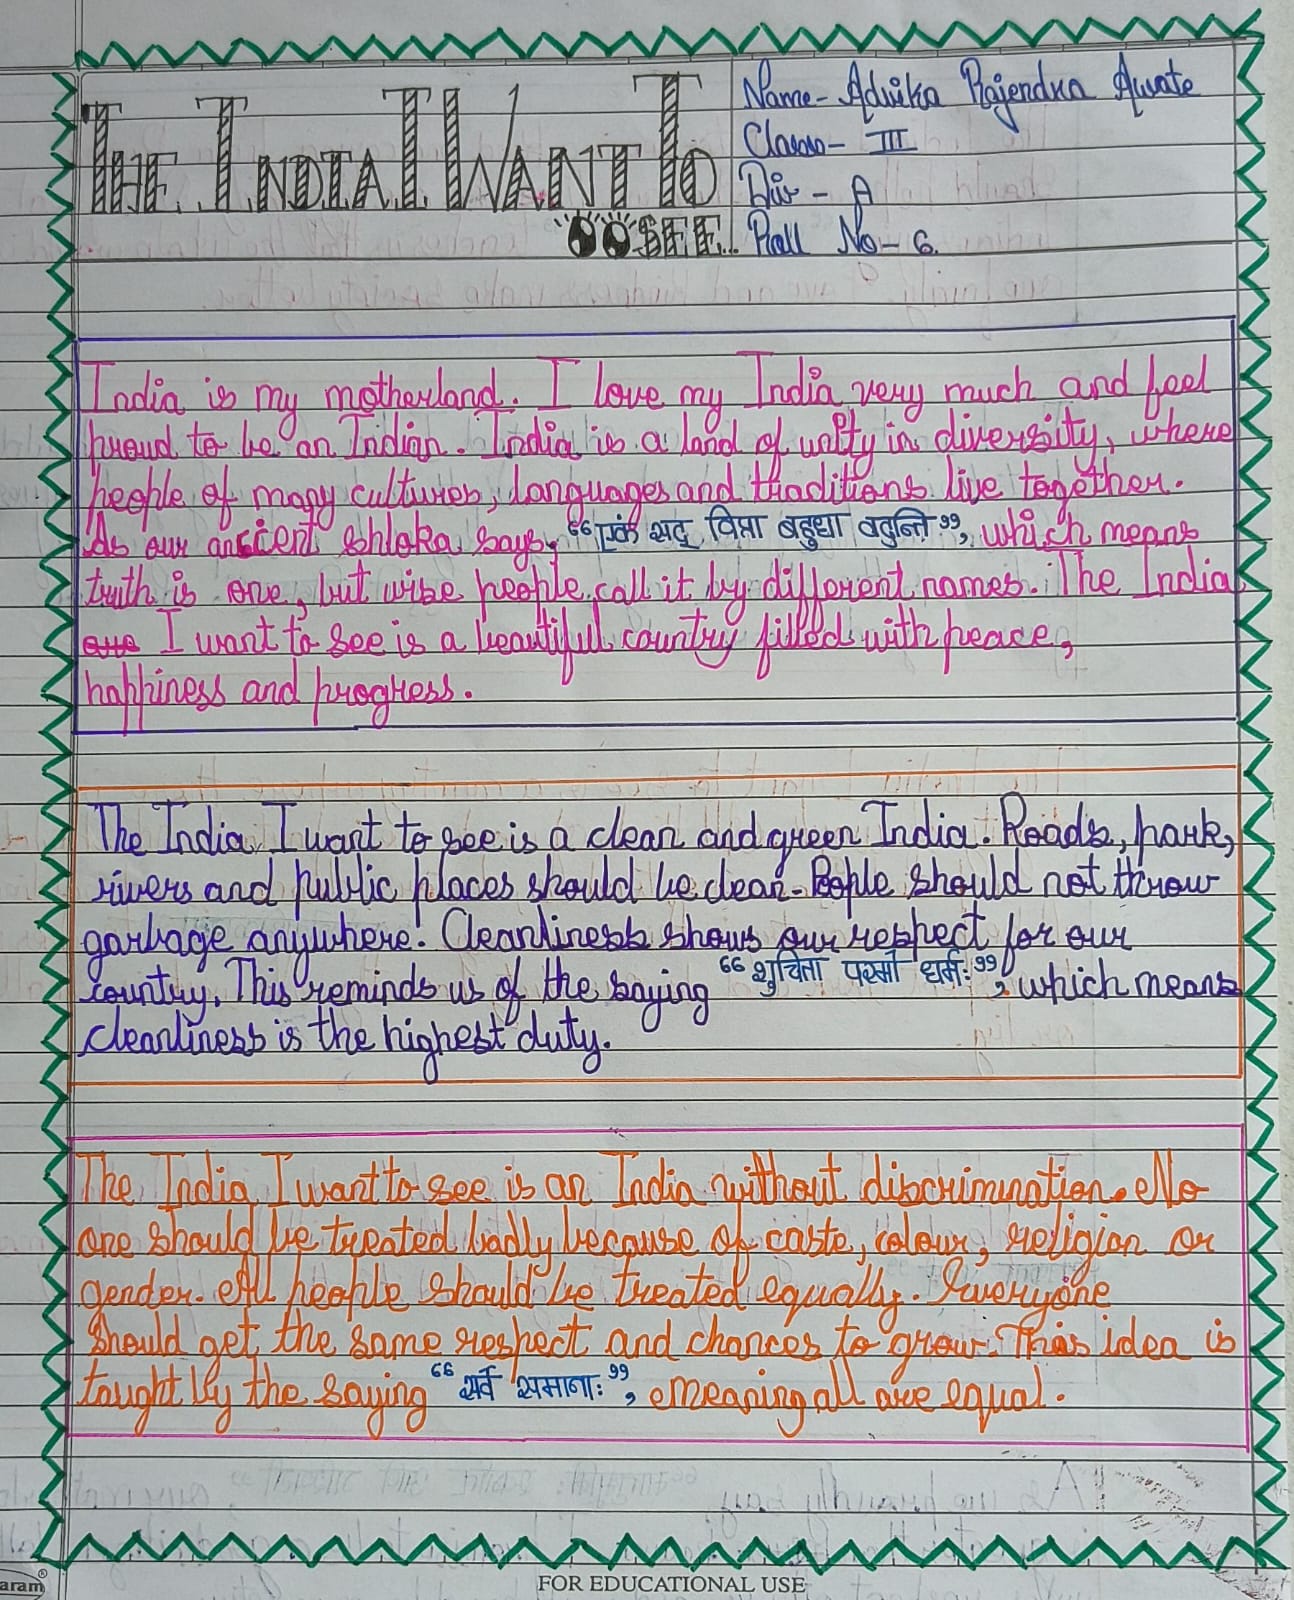 THE INDIA I WANT TO
SEE..
Name- Advika Rajendra Awate
Class- III
Div - A
Roll No- 6.
India is my motherland. I love my India very much and feel
proud to be an Indian. India is a land of unity in diversity, where
people of many cultures, languages and traditions live together.
As our ancient shloka says, “एकं सद् विप्रा बहुधा वदन्ति”, which means
truth is one, but wise people call it by different names. The India
I want to see is a beautiful country filled with peace,
happiness and progress.
The India I want to see is a clean and green India. Roads, park,
rivers and public places should be clean. People should not throw
garbage anywhere. Cleanliness shows our respect for our
country. This reminds us of the saying “शुचिता परमो धर्मः”, which means
cleanliness is the highest duty.
The India I want to see is an India without discrimination. No
one should be treated badly because of caste, colour, religion or
gender. All people should be treated equally. Everyone
should get the same respect and chances to grow. This idea is
taught by the saying “सर्वे समानाः”, meaning all are equal.
aram®
FOR EDUCATIONAL USE